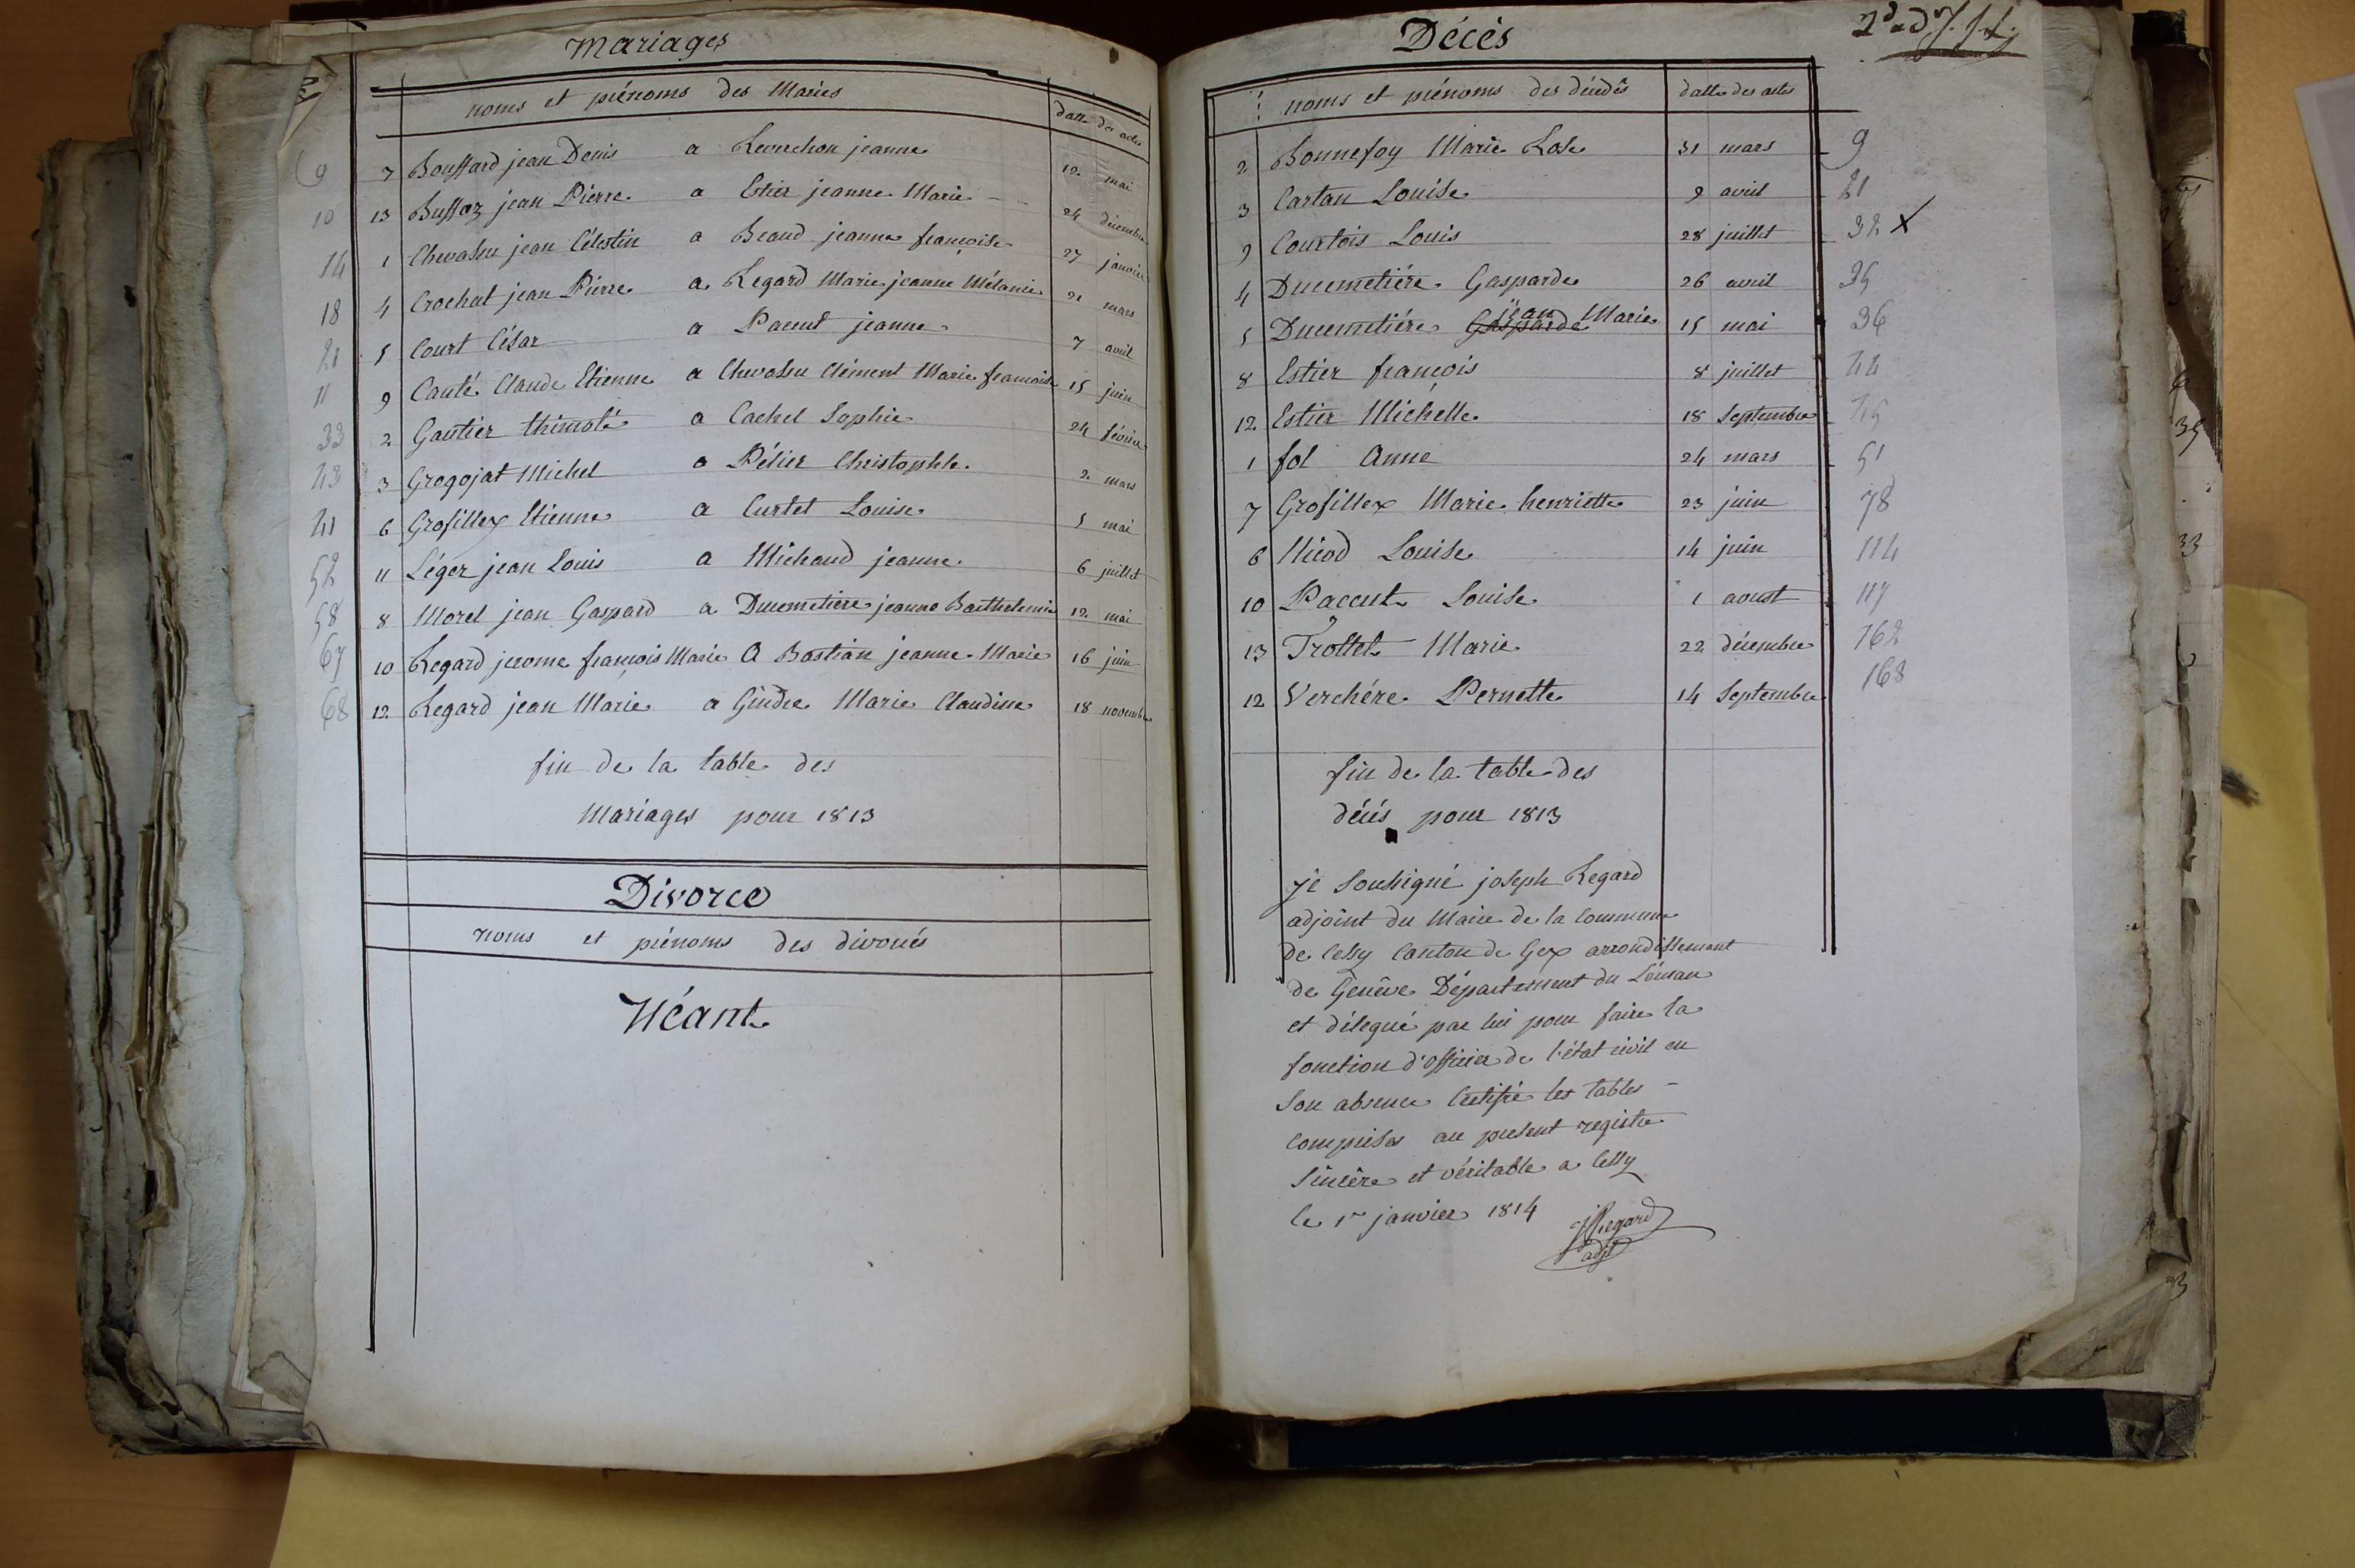 Mariages
noms et prénoms des Mariés datte des actes
9 7 Bouffard jean Denis a Reverchon jeanne 12 mai
10 13 Buffaz jean Pierre a Estier jeanne Marie - - 24 décembre
14 1 Chevassu jean Célestin a Beaud jeanne françoise 27 janvier
18 4 Crochat jean Pierre a Regard Marie jeanne Mélanie 21 mars
21 5 Court César a Paccut jeanne 7 avril
11 9 Cauté Claude Etienne a Chevassu Clément Marie francoise 15 juin
33 2 Gautier thimoté a Cachet Sophie 24 février
43 3 Grogojat Michel a Pélier Christophle 2 mars
41 6 Grosillex Etienne a Curtet Louise 5 mai
52 11 Léger jean Louis a Michaud jeanne 6 juillet
58 8 Morel jean Gaspard a Ducemetiere jeanne Barthelemie 12 mai
67 10 Regard jerome françois Marie A Bastian jeanne Marie 16 juin
68 12 Regard jean Marie a Gindre Marie Claudine 18 novembre
fin de la table des
Mariages pour 1813
Divorce
noms et prénoms des divorcés
Néant
Décès
noms et prénoms des décédés datte des actes
2 Bonnefoy Marie Rose 31 mars 9
3 Cartan Louise 9 avril 21
9 Courtois Louis 28 juillet 32 X
4 Ducemetiére Gasparde 26 avril 35
5 Ducemetiére Gasparde jean Marie 15 mai 36
8 Estier françois 8 juillet 44
12 Estier Michelle 18 Septembre 45
1 fol Anne 24 mars 51
7 Grosillex Marie henriette 23 juin 78
6 Nicod Louise 14 juin 114
10 Paccut Louise 1 aoust 117
13 Trottet Marie 22 décembre 162
12 Verchére Pernette 14 Septembre 168
fin de la table des
décés pour 1813
je Soussigné joseph Regard
adjoint du Maire de la Commune
de Cessy Canton de Gex arrondissemant
de Genêve Département du Léman
et délegué par lui pour faire la
fonction d'officier de l'état civil en
Son absence Certifie les tables -
Comprises au present registre
Sincère et véritable a Cessy
le 1er janvier 1814
JRegard
adjt